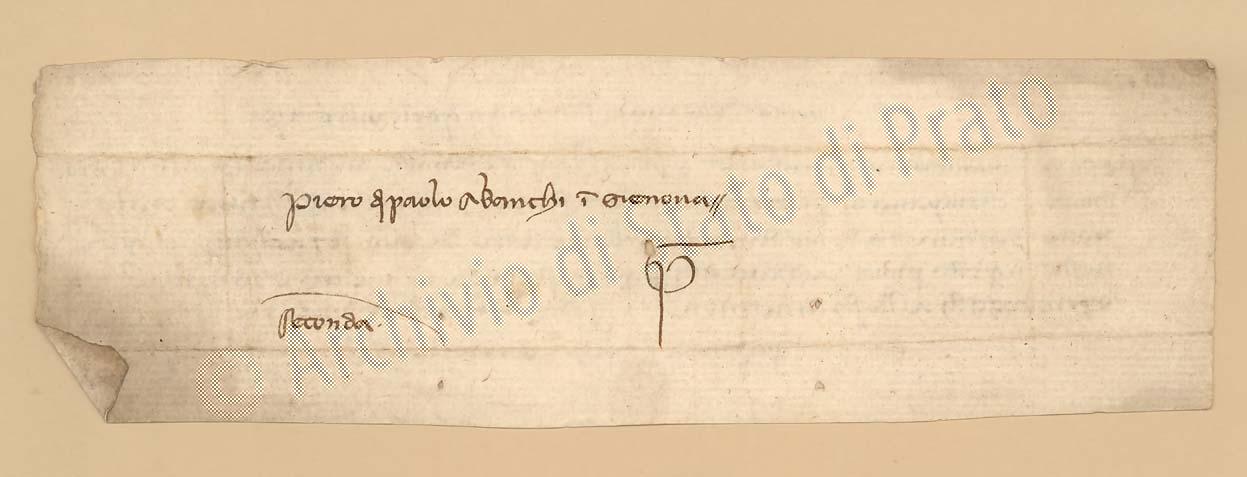 Piero e paolo Abanchi in Gienova //
seconda.
© Archivio di Stato di Prato